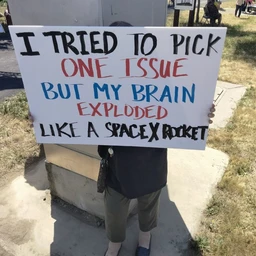 I TRIED TO PICK
ONE ISSUE
BUT MY BRAIN
EXPLODED
LIKE A SPACEX ROCKET